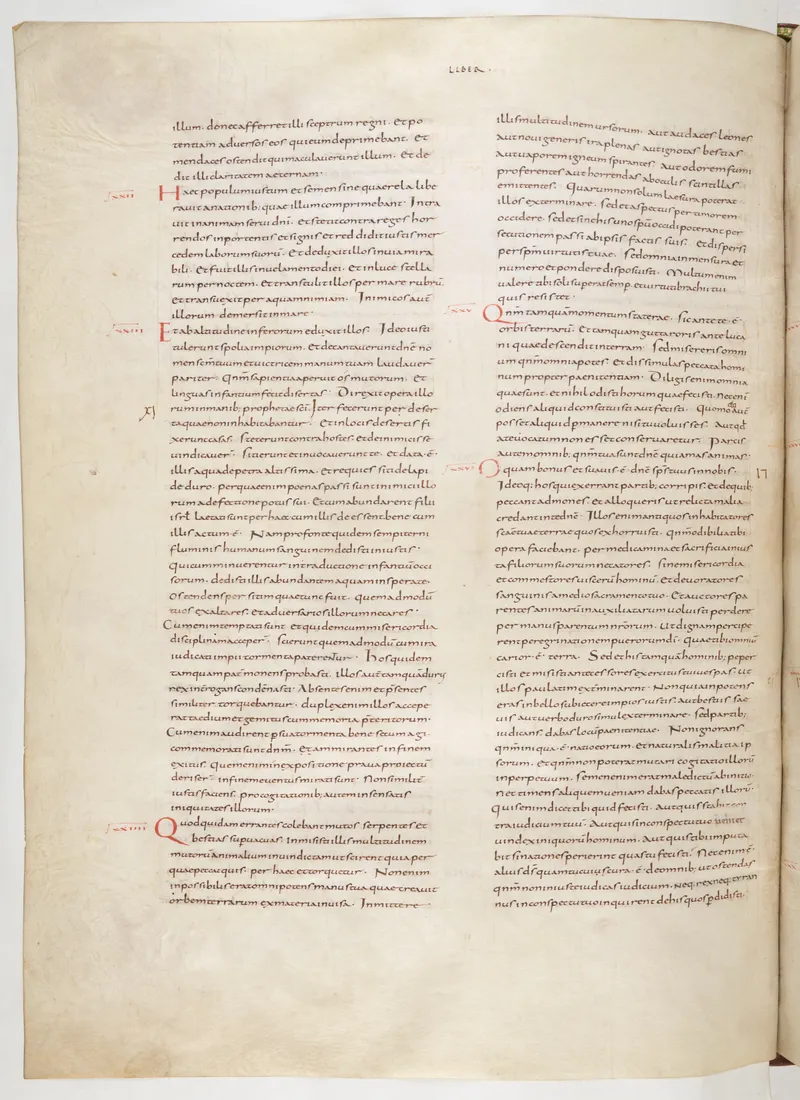 LIBER
illum. donec afferret illi sceptrum regni. Et po
tentiam adversos eos qui eum deprimebant. Et
mendaces ostendit qui maculaverunt illum. Et de
dit illi claritatem aeternam·
XXII Haec populum iustum et semen sine quaerela libe
ravit a nationib; quae illum comprimebant. Intra
vit in animam servi dni. et stetit contra reges hor
rendos in portentis et signis et reddidit iustis mer
cedem laborum suorū. Et deduxit illos in via mira
bili. Et fuit illis in velamento diei. et in luce stella
rum per noctem. et transtulit illos per mare rubrū.
et transvexit per aquam nimiam. Inimicos aut̄
illorum demersit in mare·
XXIII Et ab altitudine inferorum eduxit illos. Ideo iusti
tulerunt spolia impiorum. et decantaverunt dn̄e no
men sc̄m tuum et victricem manum tuam laudaver̄
pariter· Qnm̄ sapientia aperuit os mutorum. Et
linguas infantium fecit disertas· Direxit opera illo
XI rum in manib; prophetae sc̄i. Iter fecerunt per deser
ta quae non inhabitabantur· et in locis desertis fi
xerunt casas. steterunt contra hostes. et de inimicis se
vindicaver̄. sitierunt et invocaverunt te. et data ē.
illis aqua de petra altissima. et requies sitis de lapi
de duro. per quae enim poenas passi sunt inimici illo
rum a defectione potus sui. et cum abundarent filii
isrl̄. laetati sunt per haec cum illis deessent bene cum
illis actum ē· Nam pro fonte quidem sempiterni
fluminis humanum sanguinem dedisti iniustis·
qui cum minuerentur in traductione infantiū occi
sorum. dedisti illis abundantem aquam insperate.
ostendens per sitim quae tunc fuit. quemadmodū
tuos exaltares. et adversarios illorum necares·
Cum enim temptati sunt. et quidem cum misericordia
disciplinam acceper̄. scierunt quemadmodū cum ira
iudicati impii tormenta paterentur· Hos quidem
tamquam pater monens probasti. illos aut̄ tamquā durus
rex interrogans condēnasti· Absentes enim et p̄sentes
similiter torquebantur. duplex enim illos accepe
rat taedium et gemitus cum memoria p̄teritorum.
Cum enim audirent p̄ sua tormenta bene secum agi
commemorati sunt dnm̄. et ammirantes in finem
exitus· Quem enim in expositione prava proiectū
deriser̄. in finem eventus mirati sunt· Non similit̄
iustis faciens. pro cogitationib; autem insensatis
iniquitates illorum·
XXIIII Quod quidam errantes colebant mutos serpentes et
bestias supvacuas. Inmisisti illis multitudinem
mutorū animalium in vindictam ut scirent quia per
quae peccat quis. per haec et torquetur. Non enim
inpossibilis erat omnipotens manus tua quae creavit
orbem terrarum ex materia invisa. Inmittere
illis multitudinem ursorum. Aut audaces leones
Aut novi generis ira plenas aut ignotas bestias
Aut vaporem igneum spirantes Aut odorem fumi
proferentes Aut horrendas ab oculis scintillas
emittentes. Quarum non solum laesura poterat
illos exterminare. sed et aspectus per timorem
occidere. sed et sine his uno spū occidi poterant per
secutionem passi ab ipsis factis suis. Et dispersi
per spm̄ virtutis tuae. Sed omnia in mensura et
numero et pondere disposuisti. Multum enim
valere tibi soli superat semp. et virtuti brachii tui
quis resistet·
XXV Qnm̄ tamquam momentum staterae. sic ante te. ē.
orbis terrarū. Et tamquam gutta roris ante luca
ni quae descendit in terram. Sed misereris omni
um qnm̄ omnia potes. et dissimulas peccata homi
num propter paenitentiam. Diligis enim omnia
quae sunt. et nihil odisti horum quae fecisti. nec eni
odiens aliquid constituisti aut fecisti. Quomodo aut̄
posset aliquid pmanere nisi tu voluisses. Aut qd
a te vocatum non esset conservaretur. Parcis
autem omnib; qnm̄ tua sunt dn̄e qui amas animas·
XXVI O quam bonus et suavis. ē. dn̄e sp̄s tuus in nobis. 17
Ideoq; hos qui exerrant partib; corripis. et de quib;
peccant admones. et alloqueris ut relicta malitia
credant in te dn̄e. Illos enim antiquos inhabitatores
sc̄ae tuae terrae quos exhorruisti. qnm̄ odibilia tibi
opera faciebant. per medicamina et sacrificia inius
ta filiorum suorum necatores. sine misericordia
et commestores viscerū hominū. et devoratores
sanguinis a medio sacramento tuo. Et auctores pa
rentes animarū inauxiliatarum voluisti perdere
per manus parentum nrorum. Ut digna percipe
rent peregrinationem puerorum di. quae tibi omniū
carior ē. terra. Sed et his tamquā hominib; peper
cisti et misisti antecessores exercitus tui vespas. ut
illos paulatim exterminarent· Non quia inpotens
eras in bello subicere impios iustis. Aut bestiis sae
vis aut verbo duro simul exterminare. sed partib;
iudicans dabas locū paenitentiae. Non ignorans
qnm̄ iniqua. ē. natio eorum. et naturalis malitia ip
sorum. et qnm̄ non poterat mutari cogitatio illorū
in perpetuum. semen enim erat maledictū ab initio.
Nec timens aliquem veniam dabas peccatis illorū.
Quis enim dicet tibi quid fecisti. Aut quis stabit con
tra iudicium tuū. Aut quis in conspectu tuo veniet
vindex iniquorū hominum. Aut quis tibi imputa
bit si nationes perierint quas tu fecisti. Nec enim. ē.
alius ds̄ quam tu cui cura. ē. de omnib; ut ostendas
qnm̄ non iniuste iudicas iudicium. Neq; rex neq; tyran
nus in conspectu tuo inquirent de his quos pdidisti.